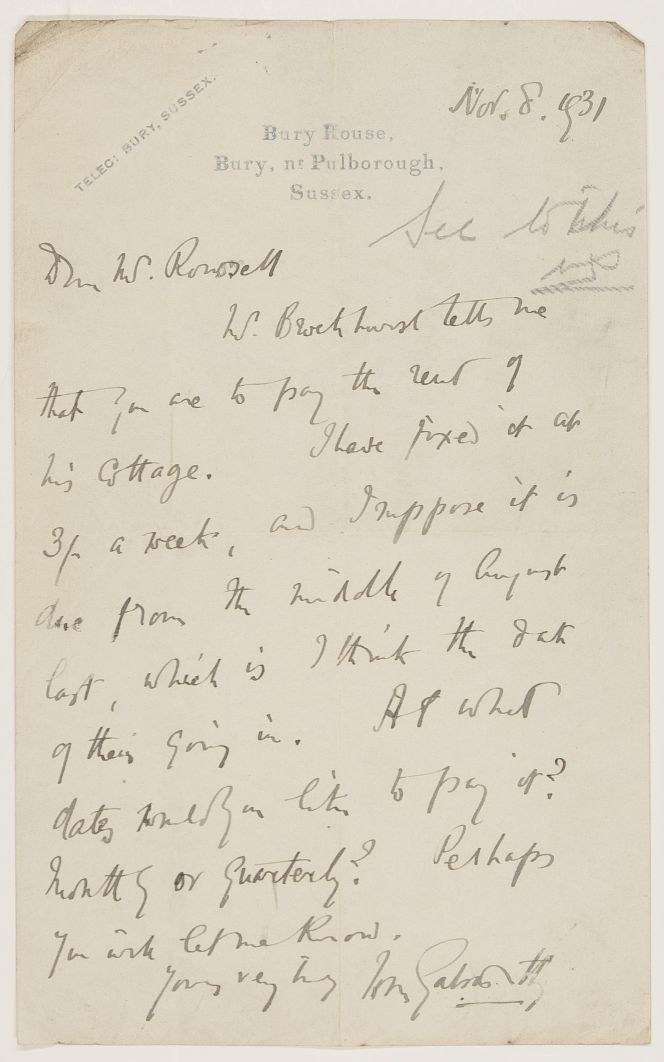 Nov. 8. 1931
TELEG: BURY, SUSSEX.
Bury House,
Bury, nr Pulborough,
Sussex.
See to this
Dear Mr. Rowsell
Mr. Brockhurst tells me
that you are to pay the rent of
his cottage. I have fixed it at
3/- a week, and I suppose it is
due from the middle of August
last, which is I think the date
of their going in. At what
dates would you like to pay it?
Monthly or Quarterly? Perhaps
you will let me know.
Yours very truly John Galsworthy